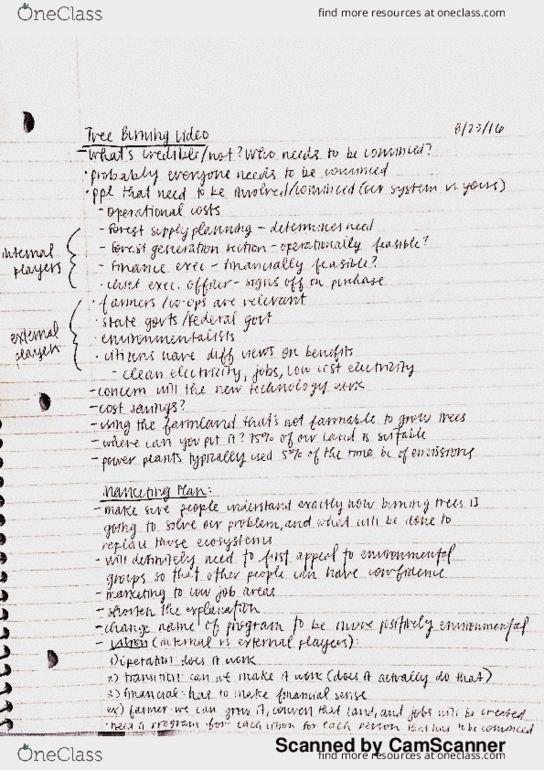 OneClass
find more resources at oneclass.com
Tree Burning Video
8/23/16
- what's credible/not? Who needs to be convinced?
· probably everyone needs to be convinced
· ppl that need to be involved/convinced (our system vs yours)
- operational costs
internal players
- forest supply planning - determines need
- forest generation section - operationally feasible?
- finance exec - financially feasible?
- chief exec. officer - signs off on purchase
external players
· farmers/co-ops are relevant
· state govts/federal govt
· environmentalists
· citizens have diff views on benefits
- clean electricity, jobs, low cost electricity
- concern will the new technology work
- cost savings?
- using the farmland that's not farmable to grow trees
- where can you put it? 75% of our land is suitable
- power plants typically used 5% of the time bc of emissions
Marketing Plan:
- make sure people understand exactly how burning trees is
going to solve our problem, and what will be done to
replace those ecosystems
- will definitely need to first appeal to environmental
groups so that other people can have confidence
- marketing to low job areas
- shorten the explanation
- change name of program to be more positively environmental
- (internal vs external players):
1) does it work
2) can we make it work (does it actually do that)
3) financial: has to make financial sense
ex) farmer: we can grow it, convert that land, and jobs will be created
need a program for each for each person that has to be convinced
Scanned by CamScanner
OneClass
find more resources at oneclass.com